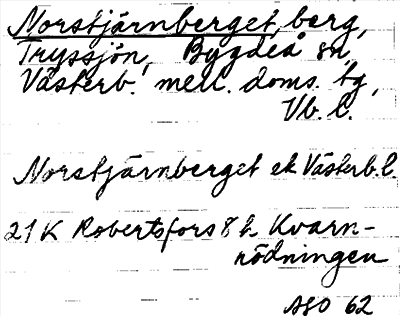 Norstjärnberget, berg,
Tryssjön, Bygdeå sn,
Västerb. mell. doms. tg,
Vb. l.
Norstjärnberget ek Västerb. l.
21 K Robertsfors 8 h Kvarn-
rödningen
ASO 62